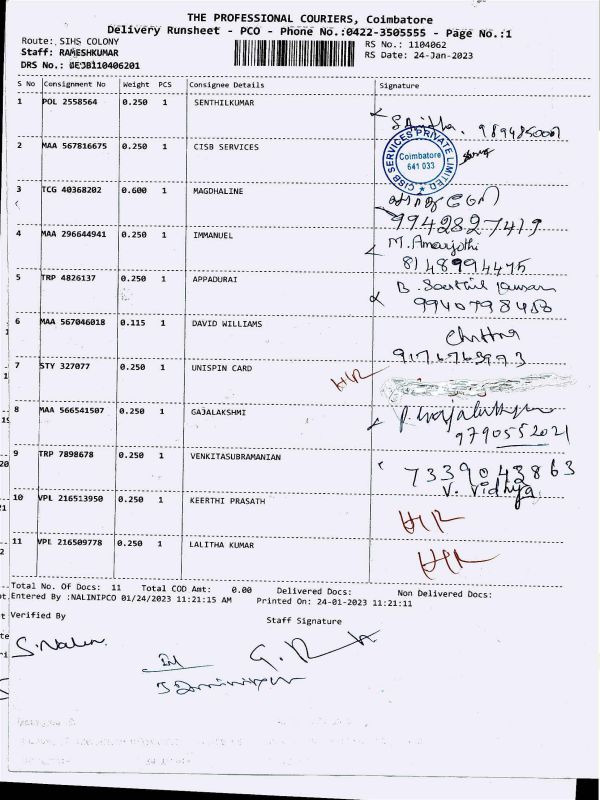 THE PROFESSIONAL COURIERS, Coimbatore
Delivery Runsheet - PCO - Phone No.:0422-3505555 - Page No.:1
Route: SIHS COLONY
RS No.: 1104062
Staff: RAMESHKUMAR
RS Date: 24-Jan-2023
DRS No.: DEJB110406201
S No Consignment No Weight PCS Consignee Details Signature
1 POL 2558564 0.250 1 SENTHILKUMAR
2 MAA 567816675 0.250 1 CISB SERVICES
CISB SERVICES PRIVATE LIMITED
Coimbatore
641 033
3 TCG 40368202 0.600 1 MAGDHALINE
9942827419
4 MAA 296644941 0.250 1 IMMANUEL M. Amarjothi
8148994475
5 TRP 4826137 0.250 1 APPADURAI B. Senthil Kumar
9940798418
6 MAA 567046018 0.115 1 DAVID WILLIAMS Chitra
7 STY 327077 0.250 1 UNISPIN CARD
8 MAA 566541507 0.250 1 GAJALAKSHMI
9790552021
9 TRP 7898678 0.250 1 VENKITASUBRAMANIAN 7339043863
V. Vidhya
10 VPL 216513950 0.250 1 KEERTHI PRASATH
11 VPL 216509778 0.250 1 LALITHA KUMAR
Total No. Of Docs: 11 Total COD Amt: 0.00 Delivered Docs: Non Delivered Docs:
Entered By :NALINIPCO 01/24/2023 11:21:15 AM Printed On: 24-01-2023 11:21:11
Verified By Staff Signature
S. Nalin